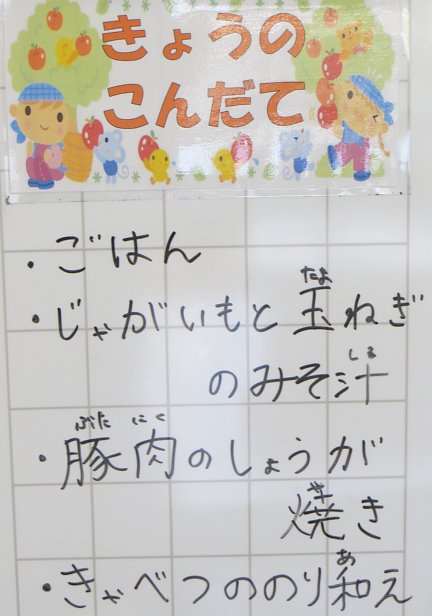 きょうの
こんだて
・ごはん
・じゃがいもと玉ねぎ
のみそ汁
・豚肉のしょうが
焼き
・きゃべつののり和え